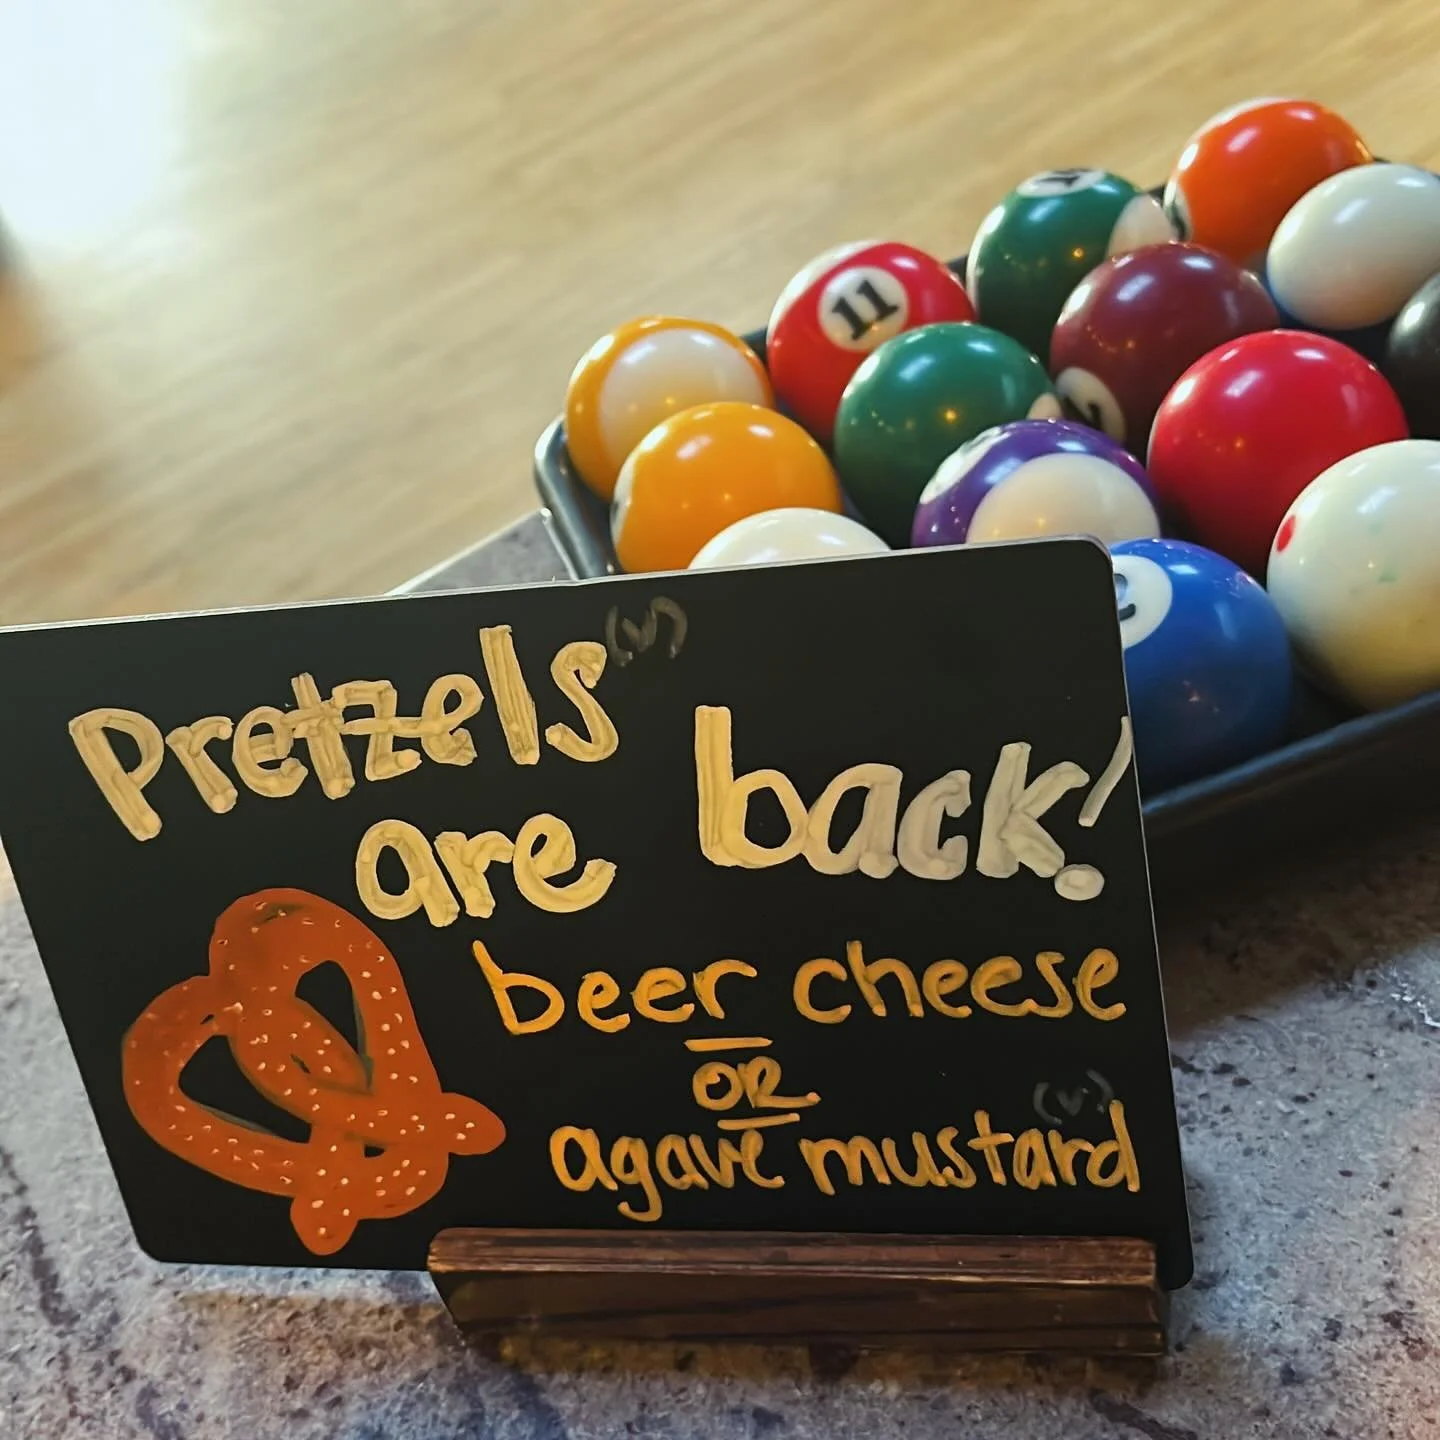 11
Pretzels (v)
are back!
beer cheese
OR
agave mustard (v)